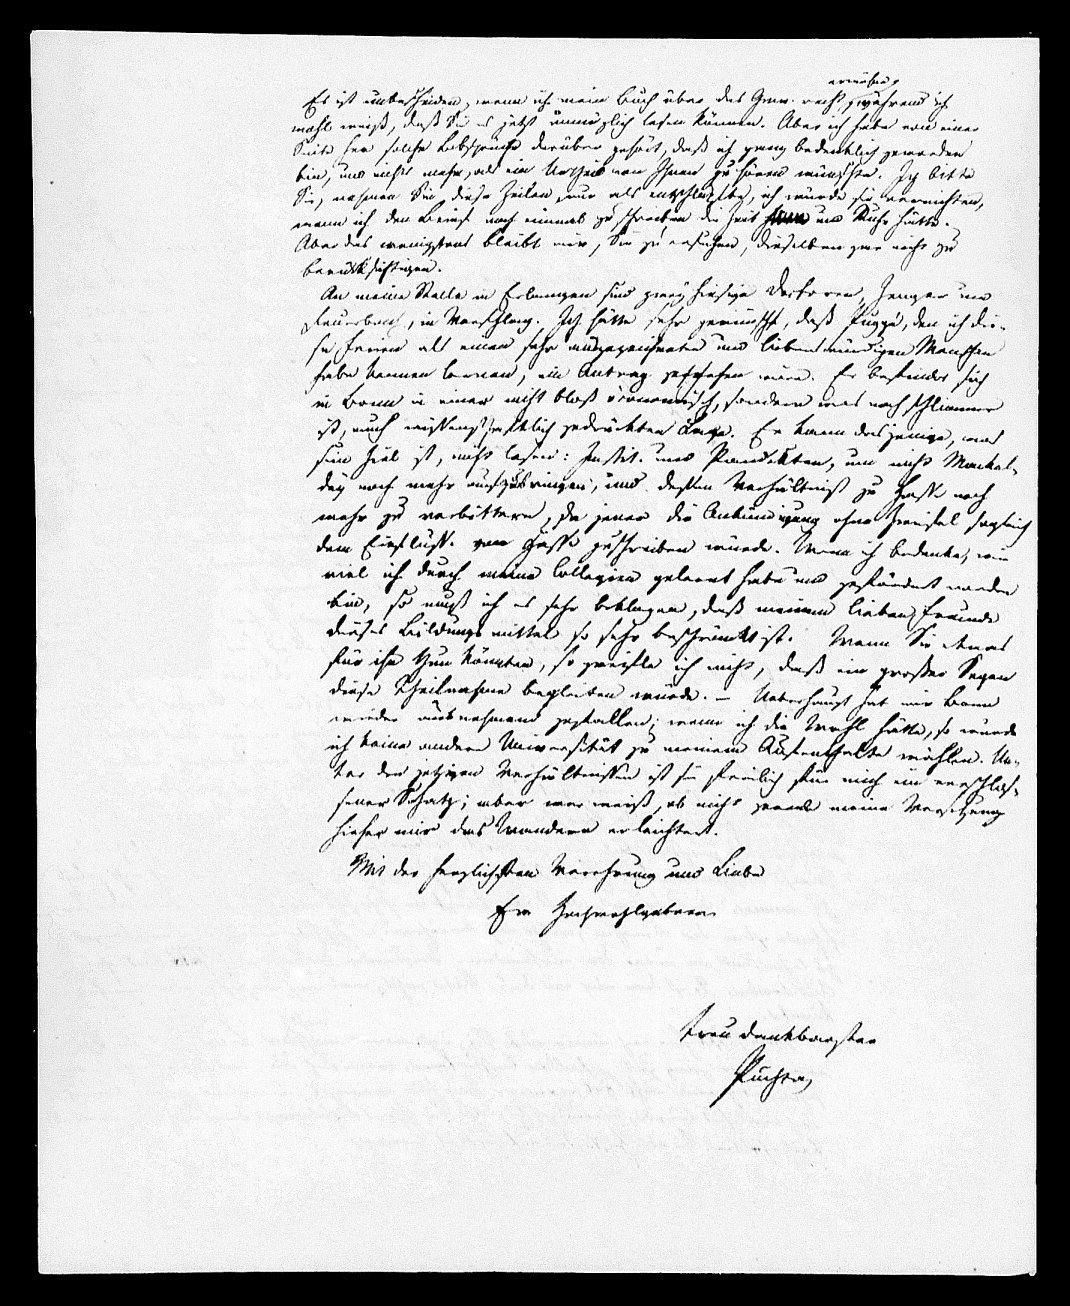 erwähne,
Es ist unbescheiden, wenn ich mein Buch über das Gew. recht während ich
wohl weiß, daß Sie es jetzt unmöglich lesen können. Aber ich habe von einer
Seite her solche Lobsprüche darüber gehört, daß ich ganz bedenklich geworden
bin, und nichts mehr, als ein Urtheil von Ihnen zu hören wünschte. Ich bitte
Sie, nehmen Sie diese Zeilen nur als entschlüpfte, ich würde sie vernichten,
wenn ich den Brief noch einmal zu schreiben die Zeit und Ruhe hätte.
Aber das wenigstens bleibt mir, Sie zu ersuchen, dieselben gar nicht zu
berücksichtigen.
An meine Stelle in Erlangen sind zwey hiesige Doctoren, Zenger und
Feuerbach, in Vorschlag. Ich hätte sehr gewünscht, daß Puggé, den ich die-
se Ferien als einen sehr ausgezeichneten und liebenswürdigen Menschen
habe kennen lernen, ein Antrag geschehen wäre. Er befindet sich
in Bonn in einer nicht bloß öconomisch, sondern was noch schlimmer
ist, auch wissenschaftlich gedrückten Lage. Er kann dasjenige, was
sein Ziel ist, nicht lesen: Instit. und Pandekten, um nicht Mackel-
dey noch mehr aufzubringen, und dessen Verhältniß zu Hasse noch
mehr zu verbittern, da jener die Ankündigung ohne Zweifel sogleich
dem Einfluß von Hasse zuschreiben würde. Wenn ich bedenke, wie
viel ich durch meine Collegien gelernt habe und gefördert worden
bin, so muß ich es sehr beklagen, daß meinem lieben Freunde
dieses Bildungsmittel so sehr beschränkt ist. Wenn Sie etwas
für ihn thun könnten, so zweifle ich nicht, daß ein großer Segen
diese Theilnahme begleiten würde. – Ueberhaupt hat mir Bonn
wieder ausnehmend gefallen; wenn ich die Wahl hätte, so würde
ich keine andere Universität zu meinem Aufenthalte wählen. Un-
ter den jetzigen Verhältnissen ist sie freilich für mich ein verschlos-
sener Schatz; aber wer weiß, ob nicht gerade meine Versetzung
hieher mir das Wandern erleichtert.
Mit der herzlichsten Verehrung und Liebe
Ew Hochwohlgeboren
treu dankbarster
Puchta